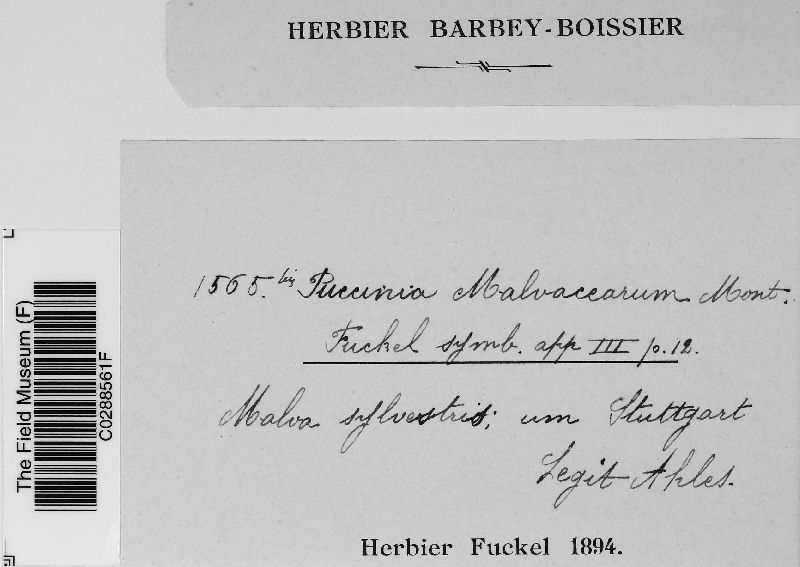 HERBIER BARBEY-BOISSIER
1565. bis Puccinia Malvacearum Mont.
Fuckel symb. app III p. 12.
Malva sylvestris; um Stuttgart
Legit Ahles.
Herbier Fuckel 1894.
The Field Museum (F)
C0288561F